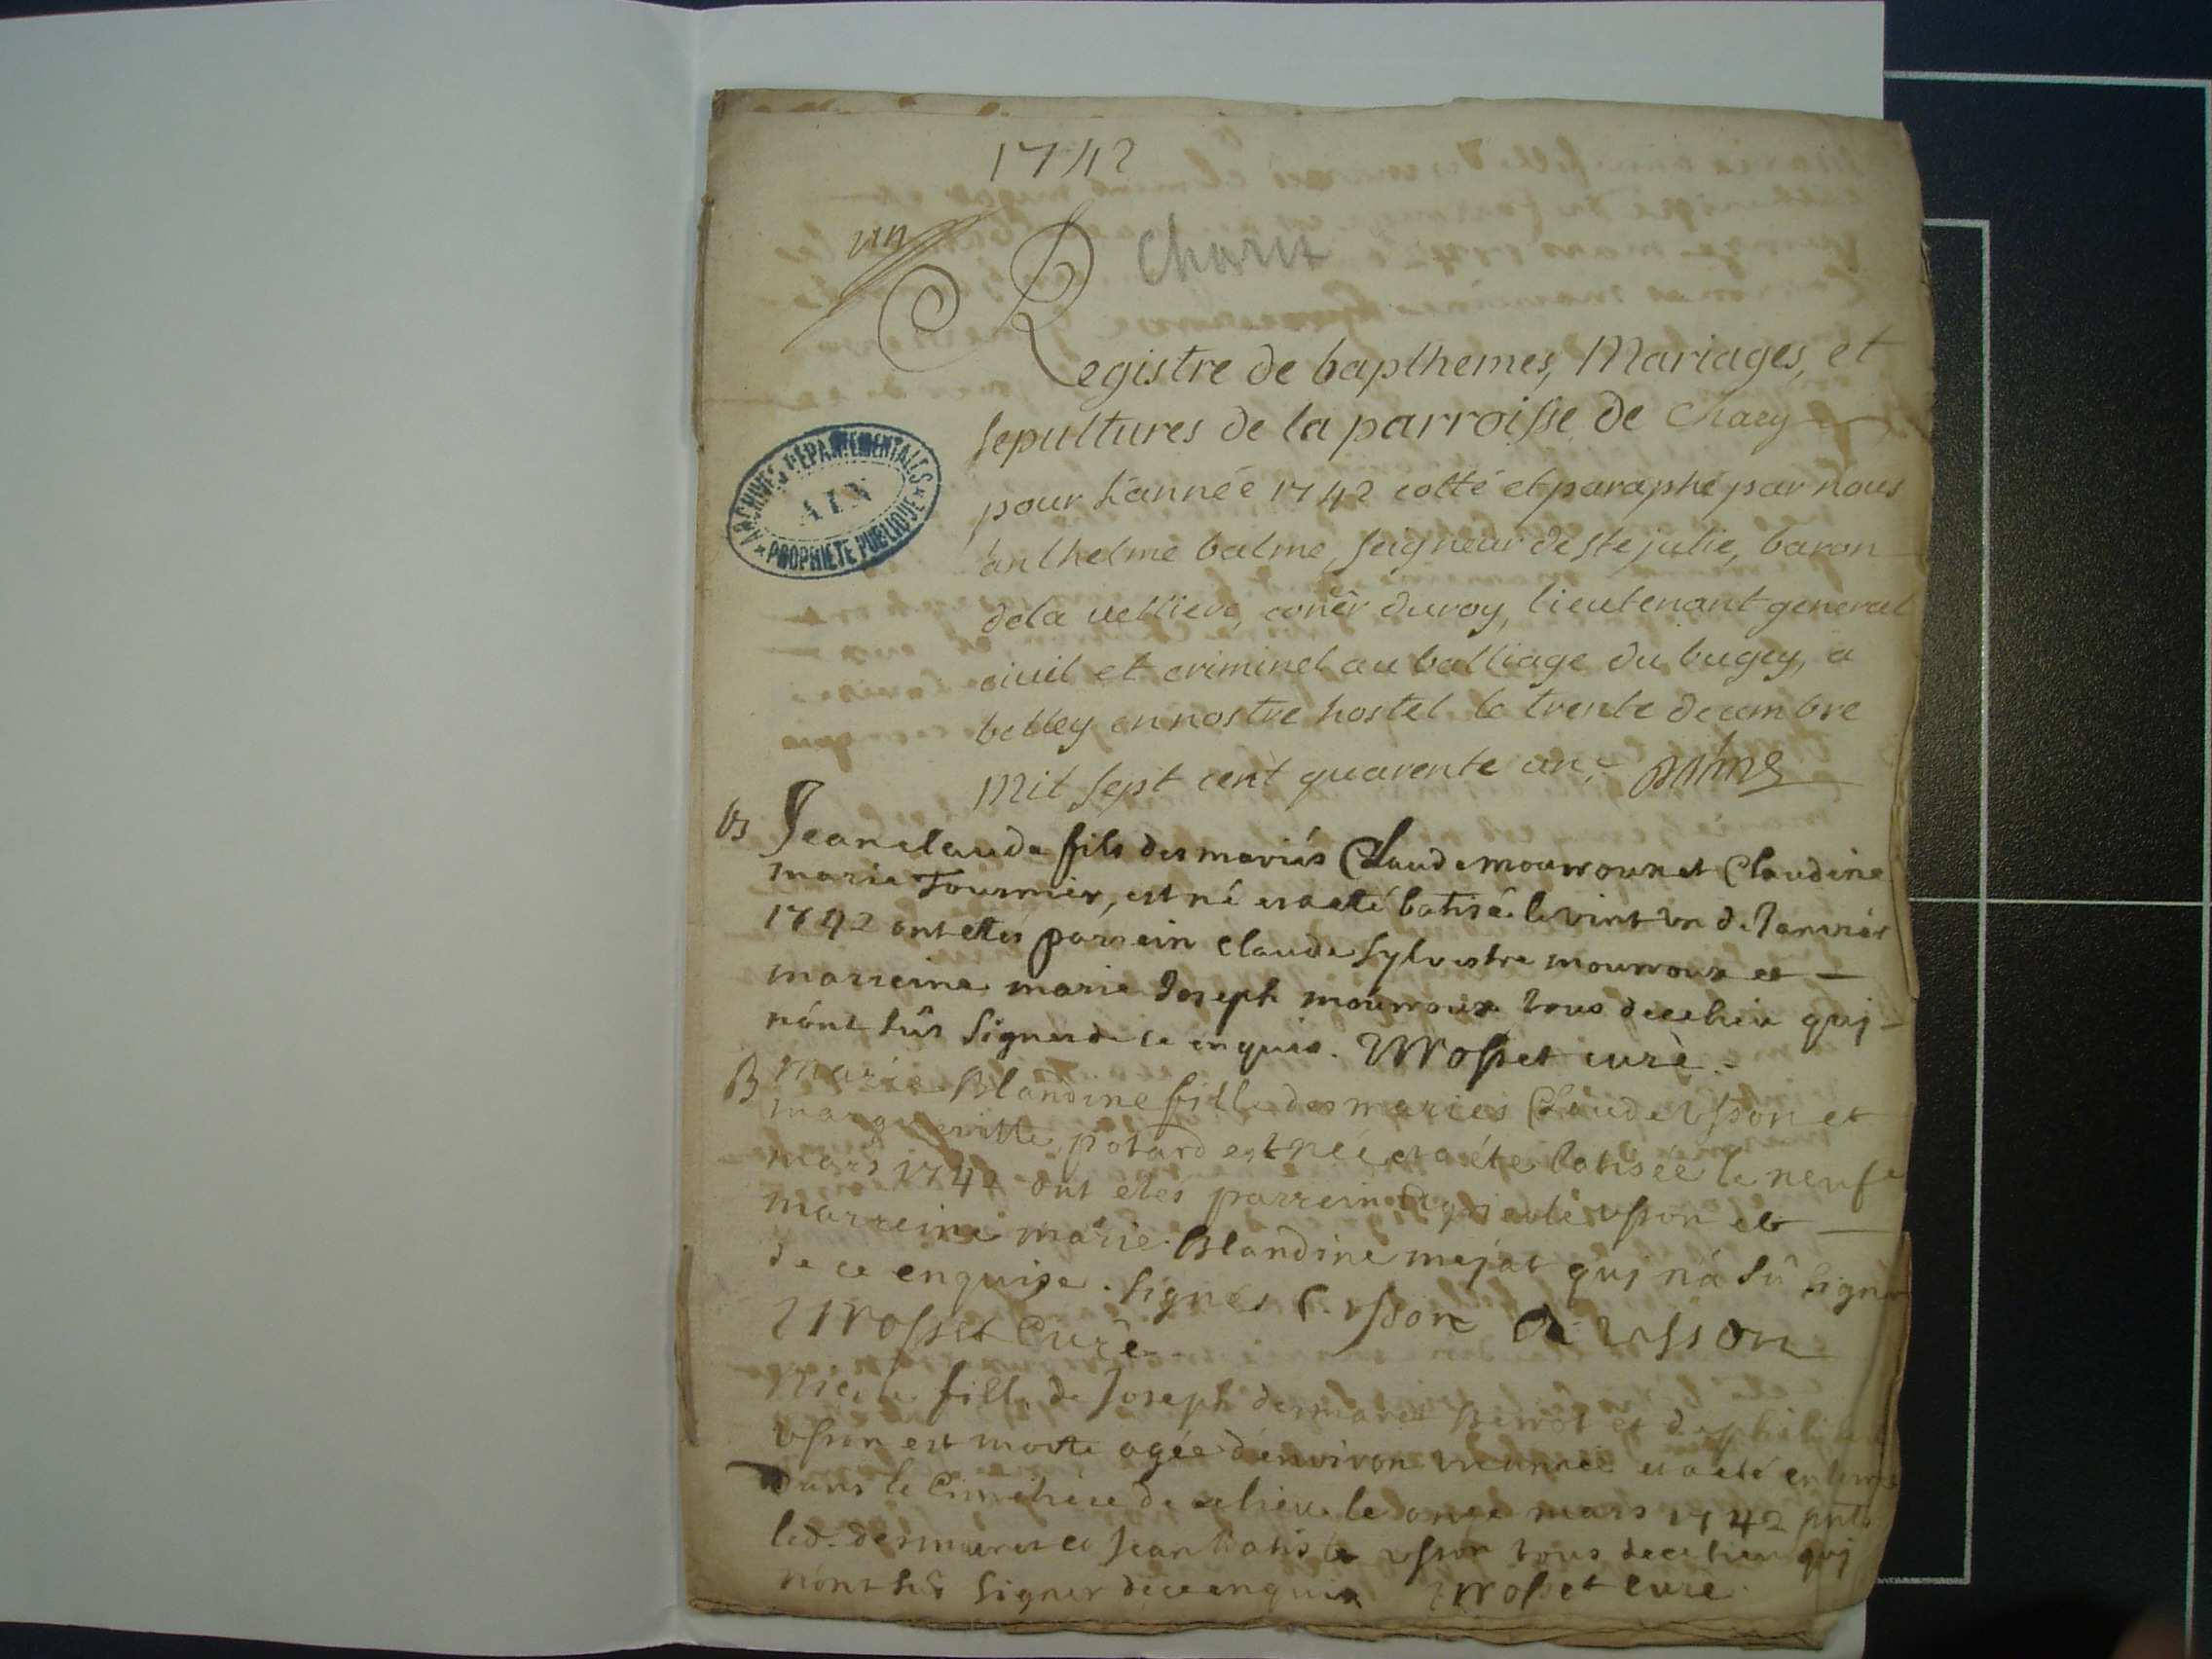 1742
un
Registre de bapthemes, Mariages, et
sepultures de la parroisse de Chaey
pour L'année 1742 cotté et paraphé par Nous
anthelme balme, seigneur de ste julie, baron
de la velliere, conêr du roy, lieutenant general
civil et criminel au balliage du bugey, a
belley en nostre hostel le trente decembre
Mil sept cent quarente un
ARCHIVES DÉPARTEMENTALES
AIN
PROPRIETE PUBLIQUE
B Jean claude fils des mariés Claude mouroux et Claudine
marie Fournier, est né et a eté batisé le vint un de Janvier
1742 ont etés parrein claude Sylvestre mouroux et
marreine marie Joseph mouroux tous de ce lieu qui
n'ont sûs signer de ce enquis. Rosset curè.
B Marie Blandine fille des mariés Claude Usson et
margueritte potard est née et a éte batisée le neuf
mars 1742 ont etés parrein usson et
marreine marie Blandine mejat qui n'a sû signer
de ce enquise. signes C. usson usson
Rosset Curè
fille de Joseph desmaret et de philiberte
usson est morte agée d'environ une année et a eté enterrée
Dans le Cimetiere de ce lieu le onze mars 1742 pnts
led. desmaret et Jean batiste usson tous de ce lieu qui
n'ont sûs signer de ce enquis Rosset curè